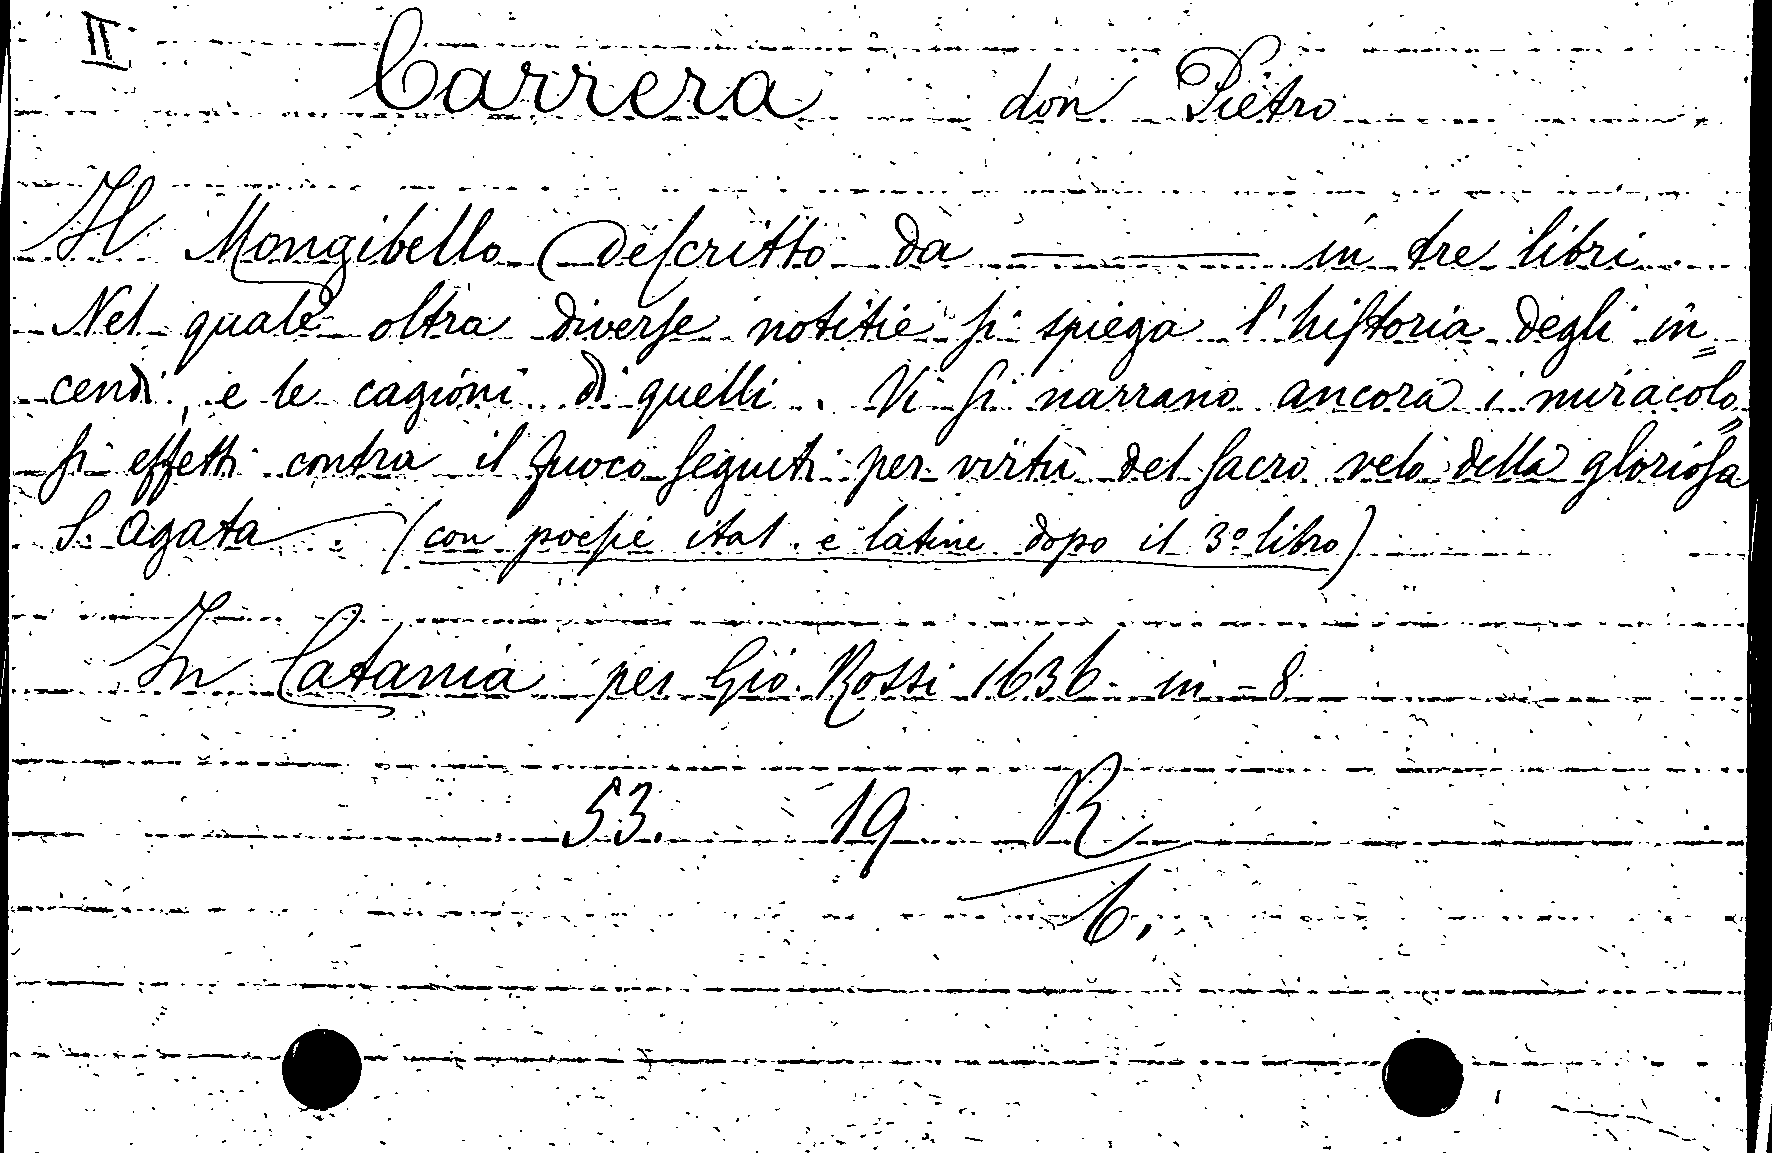 II
Carrera don Pietro
Il Mongibello descritto da —— —— in tre libri.
Nel quale oltra diverse notitie si spiega l'historia degli in=
cendi, e le cagioni di quelli. Vi si narrano ancora i miracolo=
si effetti contra il fuoco seguiti per virtù del sacro velo della gloriosa
S. Agata. (con poesie ital. e latine dopo il 3º libro)
In Catania per Gio. Rossi 1636. in-8
53. 19 R
6.